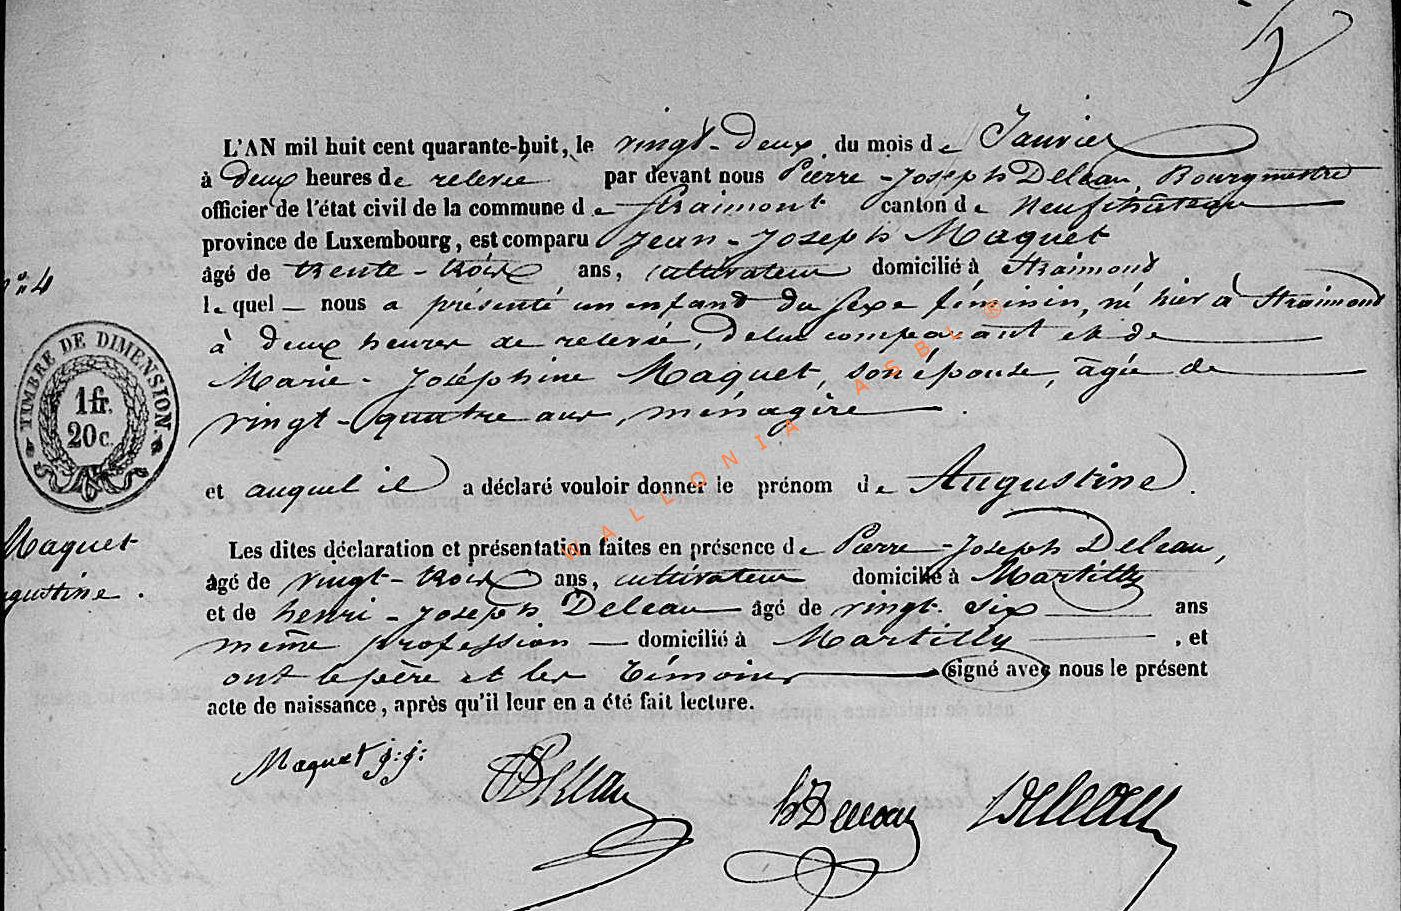 L'AN mil huit cent quarante-huit, le vingt-deux du mois de Janvier
à deux heures de relevée par devant nous Pierre-Joseph Deleau, Bourgmestre
officier de l'état civil de la commune de Straimont canton de Neufchateau
province de Luxembourg, est comparu Jean-Joseph Maquet
âgé de trente-trois ans, cultivateur domicilié à Straimont
N° 4
lequel nous a présenté un enfant du sexe féminin, né hier à Straimont
à deux heures de relevée, de lui comparant et de
Marie-Joséphine Maquet, son épouse, âgée de
vingt-quatre ans, ménagère.
TIMBRE DE DIMENSION.
1 fr.
20 c.
et auquel il a déclaré vouloir donner le prénom de Augustine.
Maquet
gustine.
Les dites déclaration et présentation faites en présence de Pierre-Joseph Deleau,
âgé de vingt-trois ans, cultivateur domicilié à Martilly
et de henri-Joseph Deleau âgé de vingt-six ans
même profession domicilié à Martilly, et
ont le père et les témoins signé avec nous le présent
acte de naissance, après qu'il leur en a été fait lecture.
Maquet j:j:
Deleau
h Deleau
Deleau
WALLONIA ASBL ®